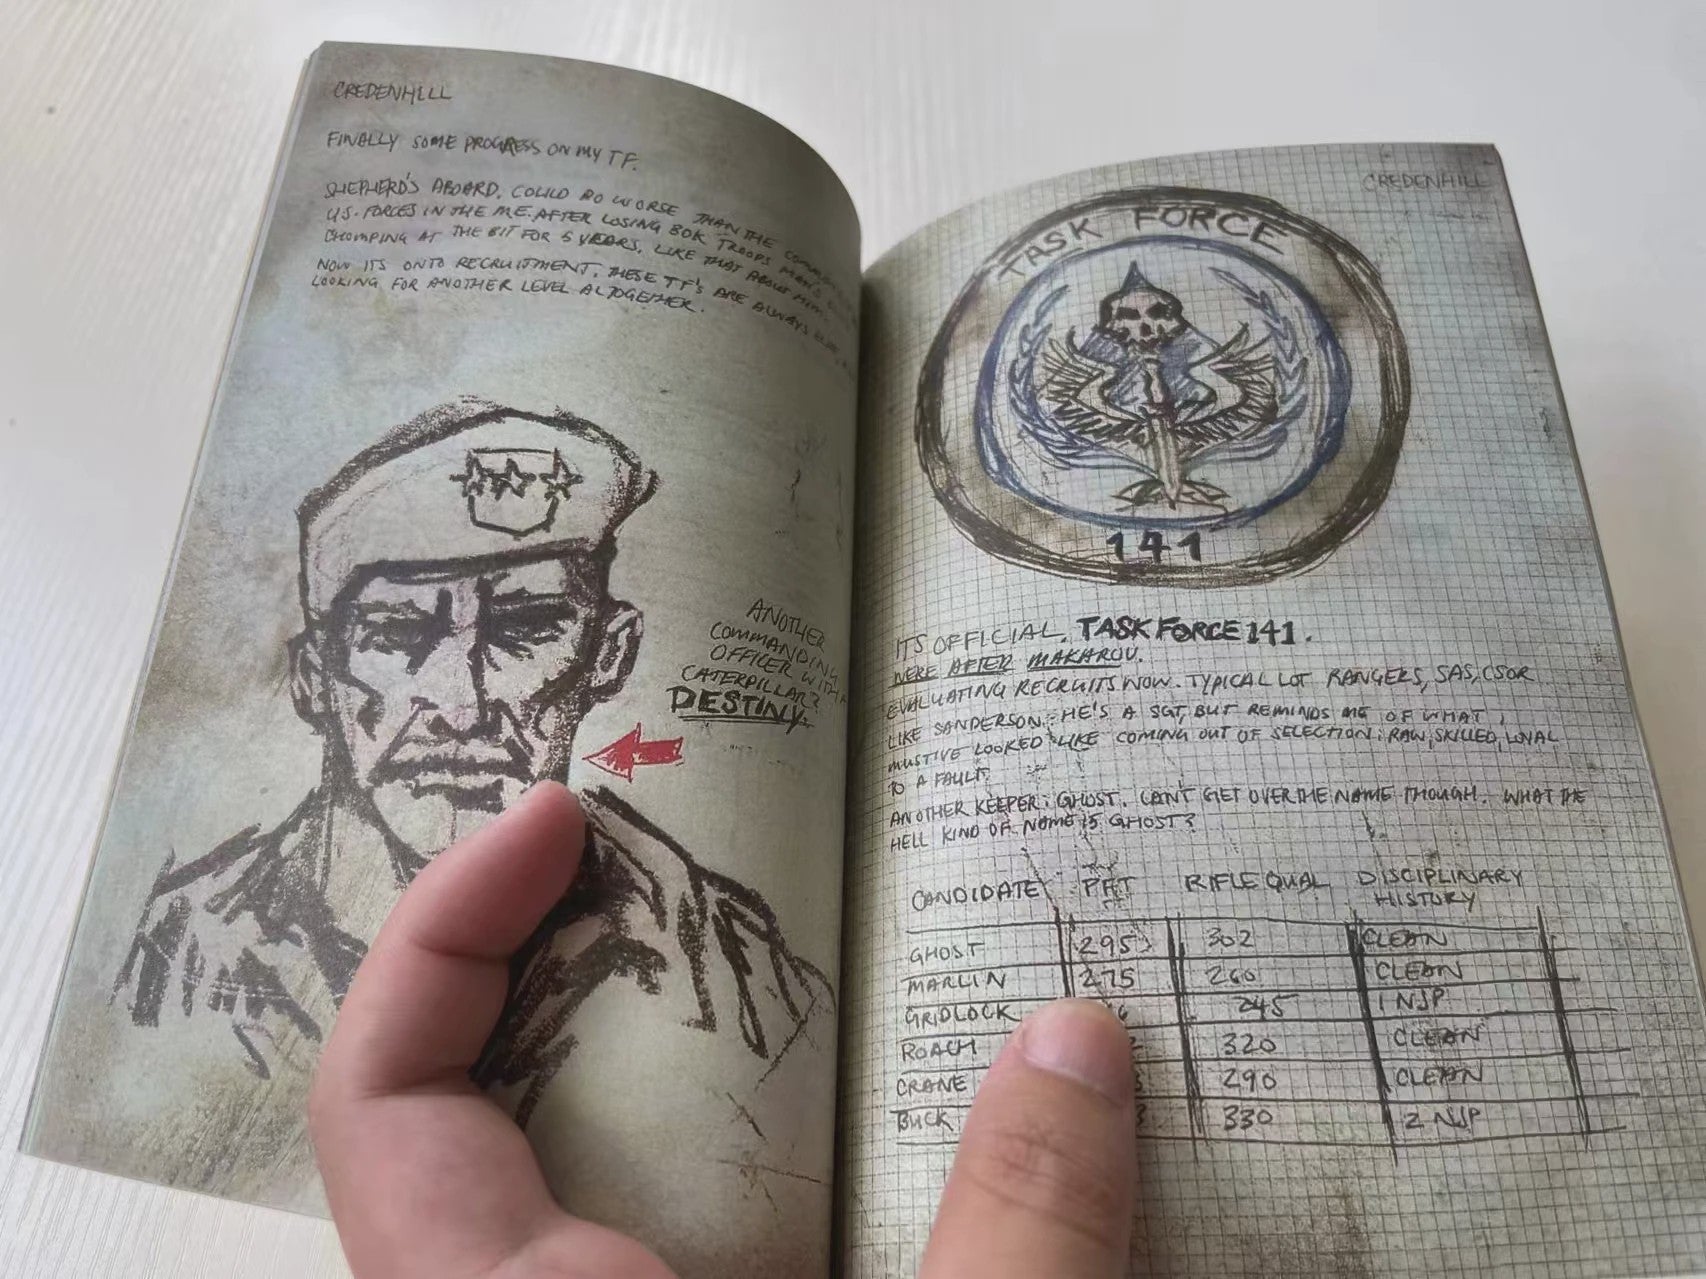 CREDENHILL
FINALLY SOME PROGRESS ON MY TF.
SHEPHERD'S ABOARD. COULD DO WORSE THAN THE
U.S. FORCES IN THE ME. AFTER LOSING 30K TROOPS MAN'S
CHOMPING AT THE BIT FOR 5 YEARS. LIKE THAT ABOUT HIM.
NOW ITS ONTO RECRUITMENT. THESE TF'S ARE ALWAYS
LOOKING FOR ANOTHER LEVEL ALTOGETHER.
ANOTHER
COMMANDING
OFFICER WITH A
CATERPILLAR?
DESTINY.
CREDENHILL
TASK FORCE
141
ITS OFFICIAL. TASK FORCE 141.
WERE AFTER MAKAROV.
EVALUATING RECRUITS NOW. TYPICAL LOT RANGERS, SAS, CSOR
LIKE SANDERSON. HE'S A SGT, BUT REMINDS ME OF WHAT I
MUSTIVE LOOKED LIKE COMING OUT OF SELECTION. RAW, SKILLED, LOYAL
TO A FAULT.
ANOTHER KEEPER: GHOST. CAN'T GET OVER THE NAME THOUGH. WHAT THE
HELL KIND OF NAME IS GHOST?
CANDIDATE PFT RIFLE QUAL DISCIPLINARY
HISTORY
GHOST 295 302 CLEAN
MARLIN 275 260 CLEAN
GRIDLOCK 245 1 NJP
ROACH 320 CLEAN
CRANE 290 CLEAN
BUCK 330 2 NJP